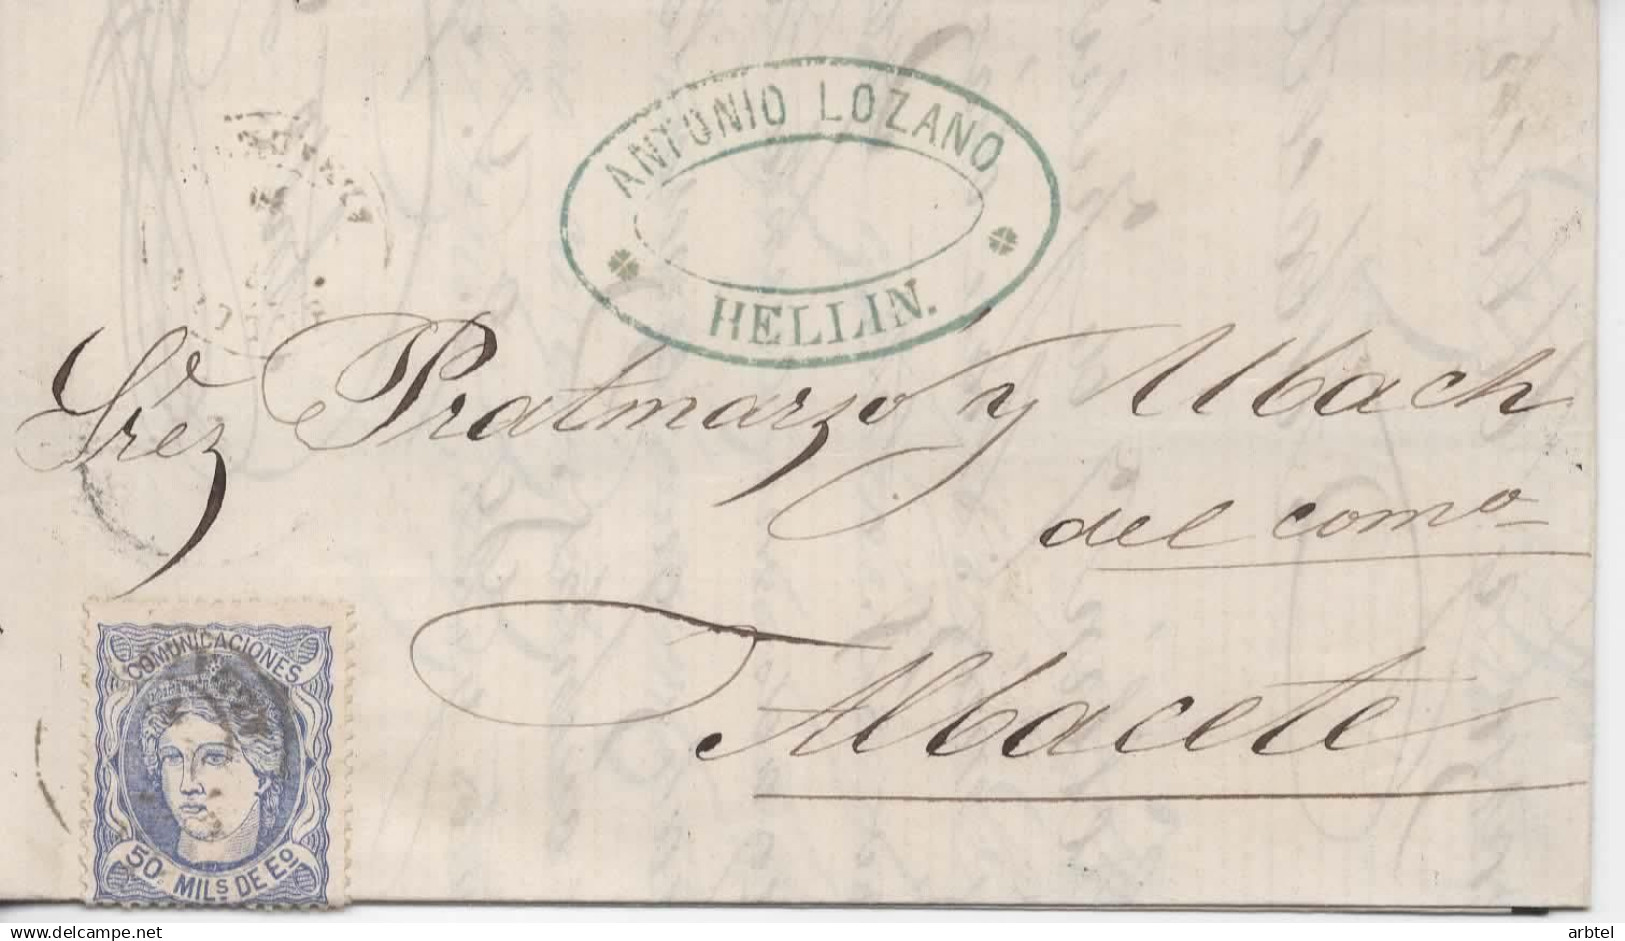 ANTONIO LOZANO
HELLIN.
Sres Pratmarzo y Ubach
del como
Albacete
COMUNICACIONES
50 MILS DE Eo
delcampe.net
arbtel